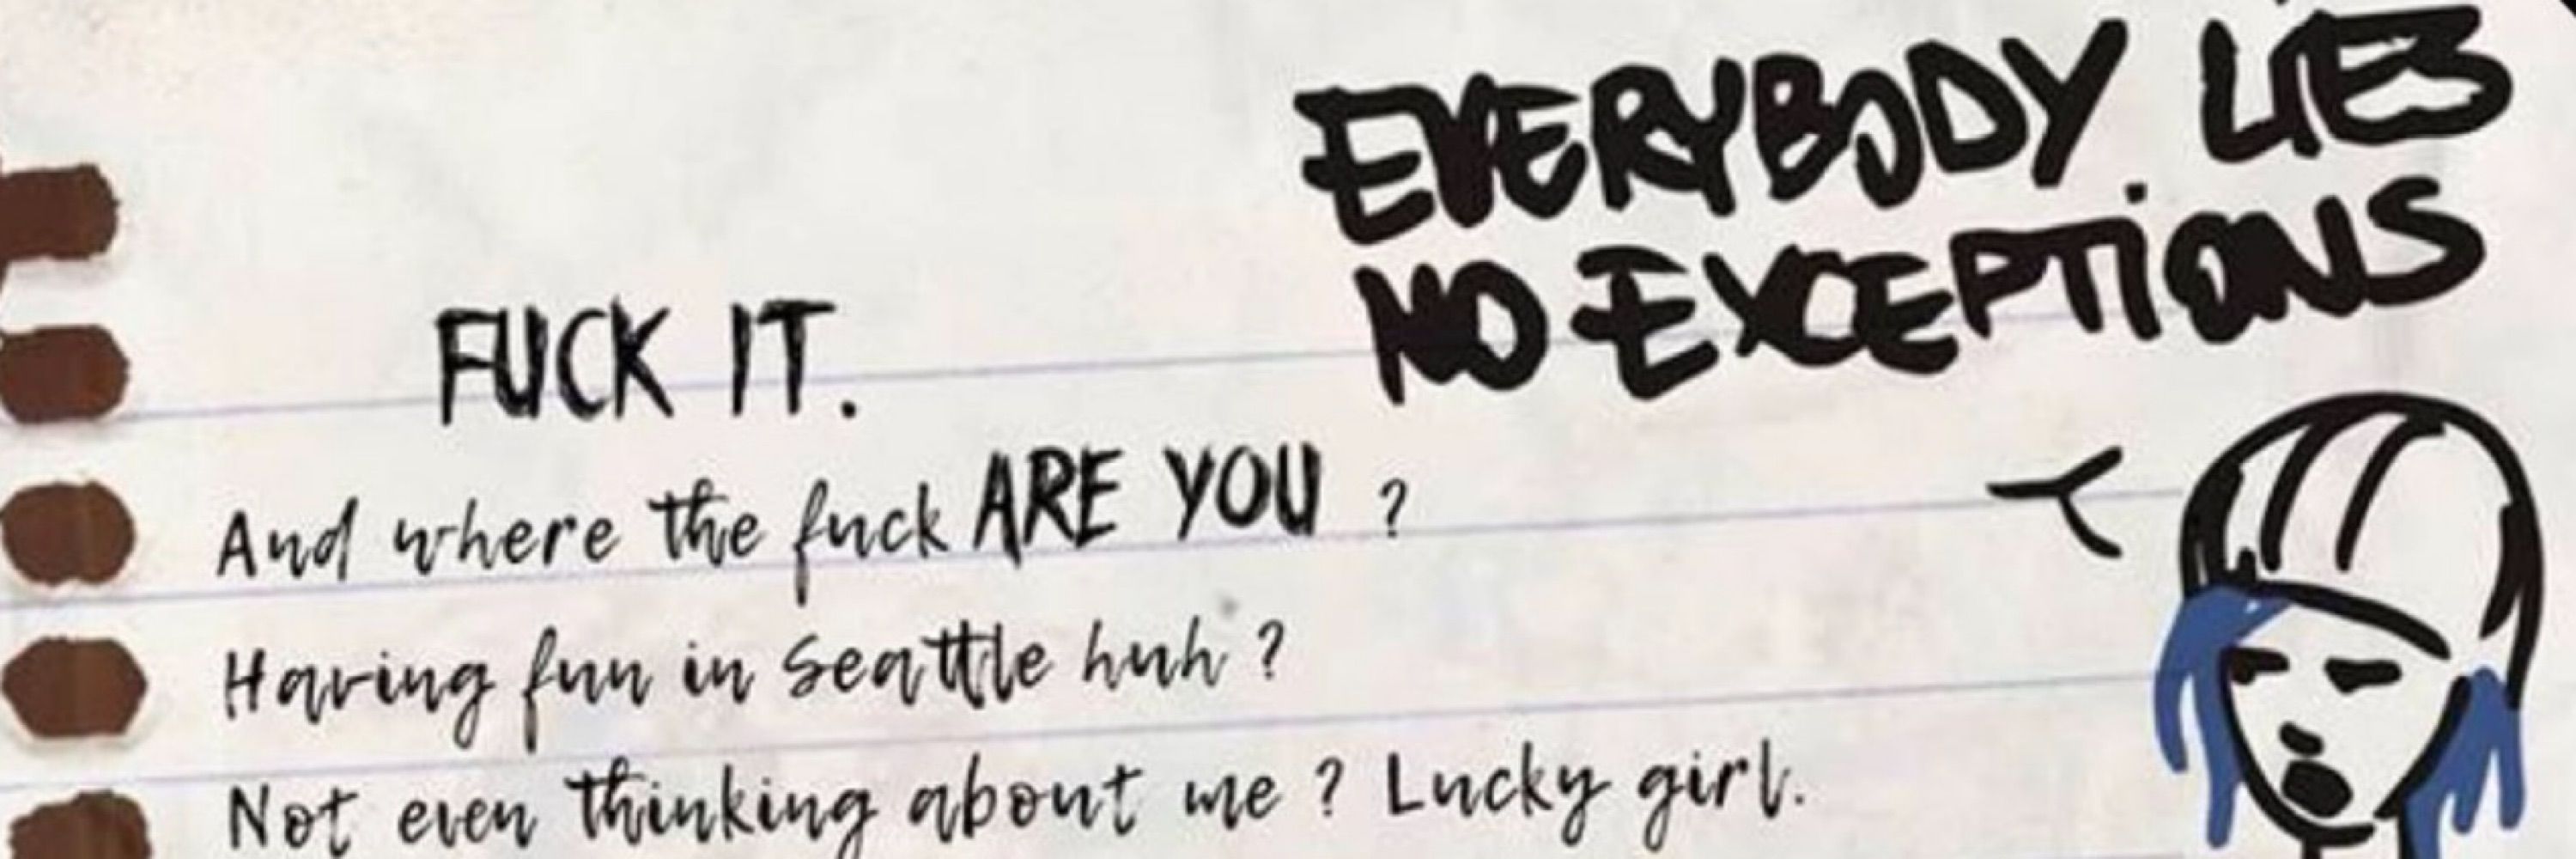 EVERYBODY LIES
NO EXCEPTIONS
FUCK IT.
And where the fuck ARE YOU ?
Having fun in Seattle huh ?
Not even thinking about me ? Lucky girl.